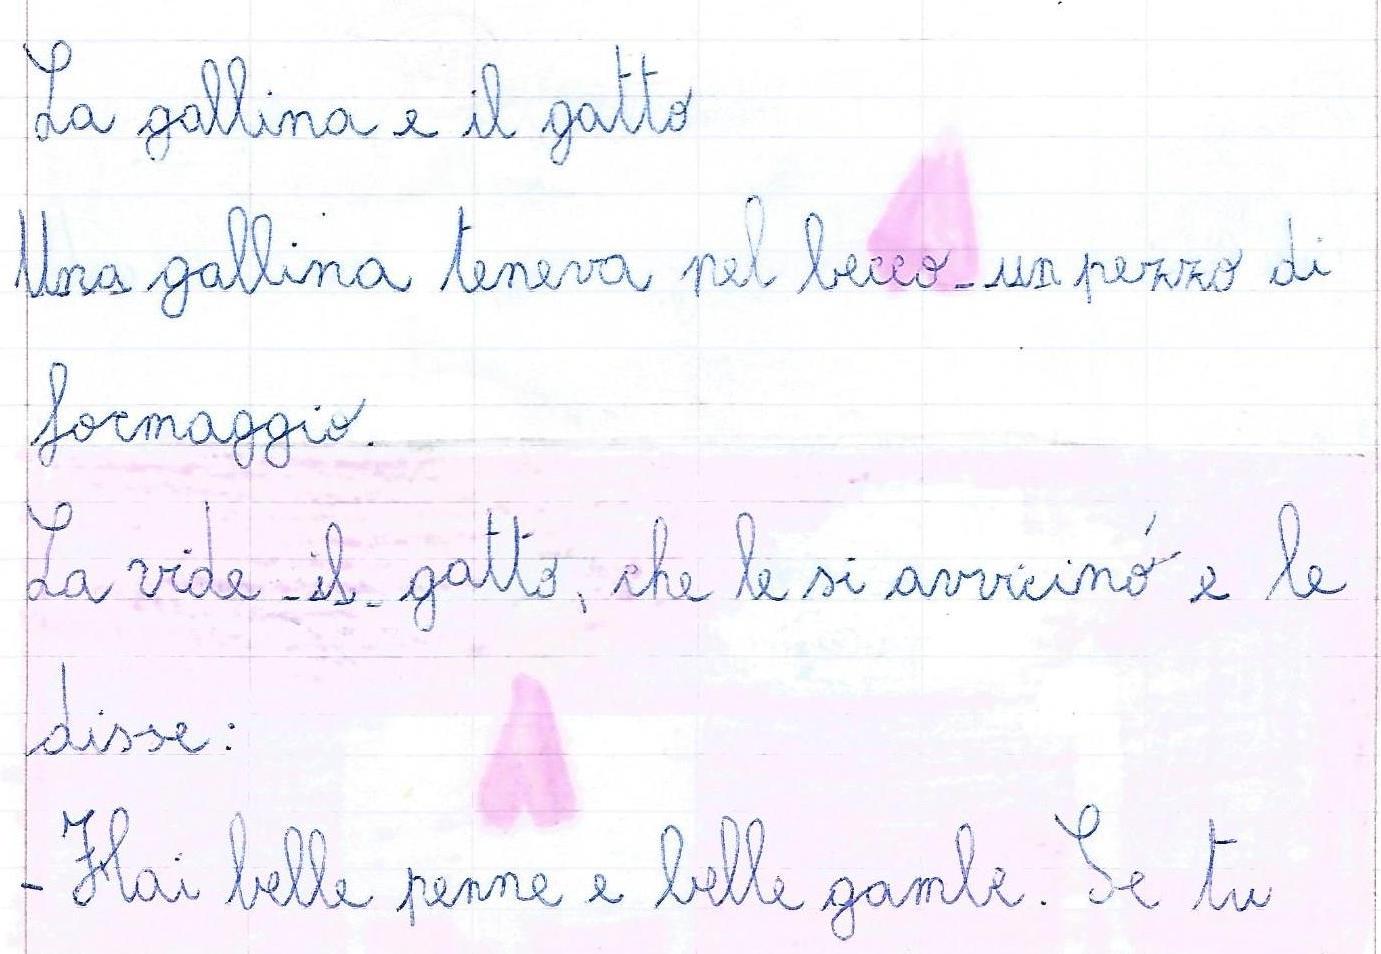 La gallina e il gatto
Una gallina teneva nel becco un pezzo di
formaggio.
La vide il gatto, che le si avvicinó e le
disse:
- Hai belle penne e belle gambe. Se tu